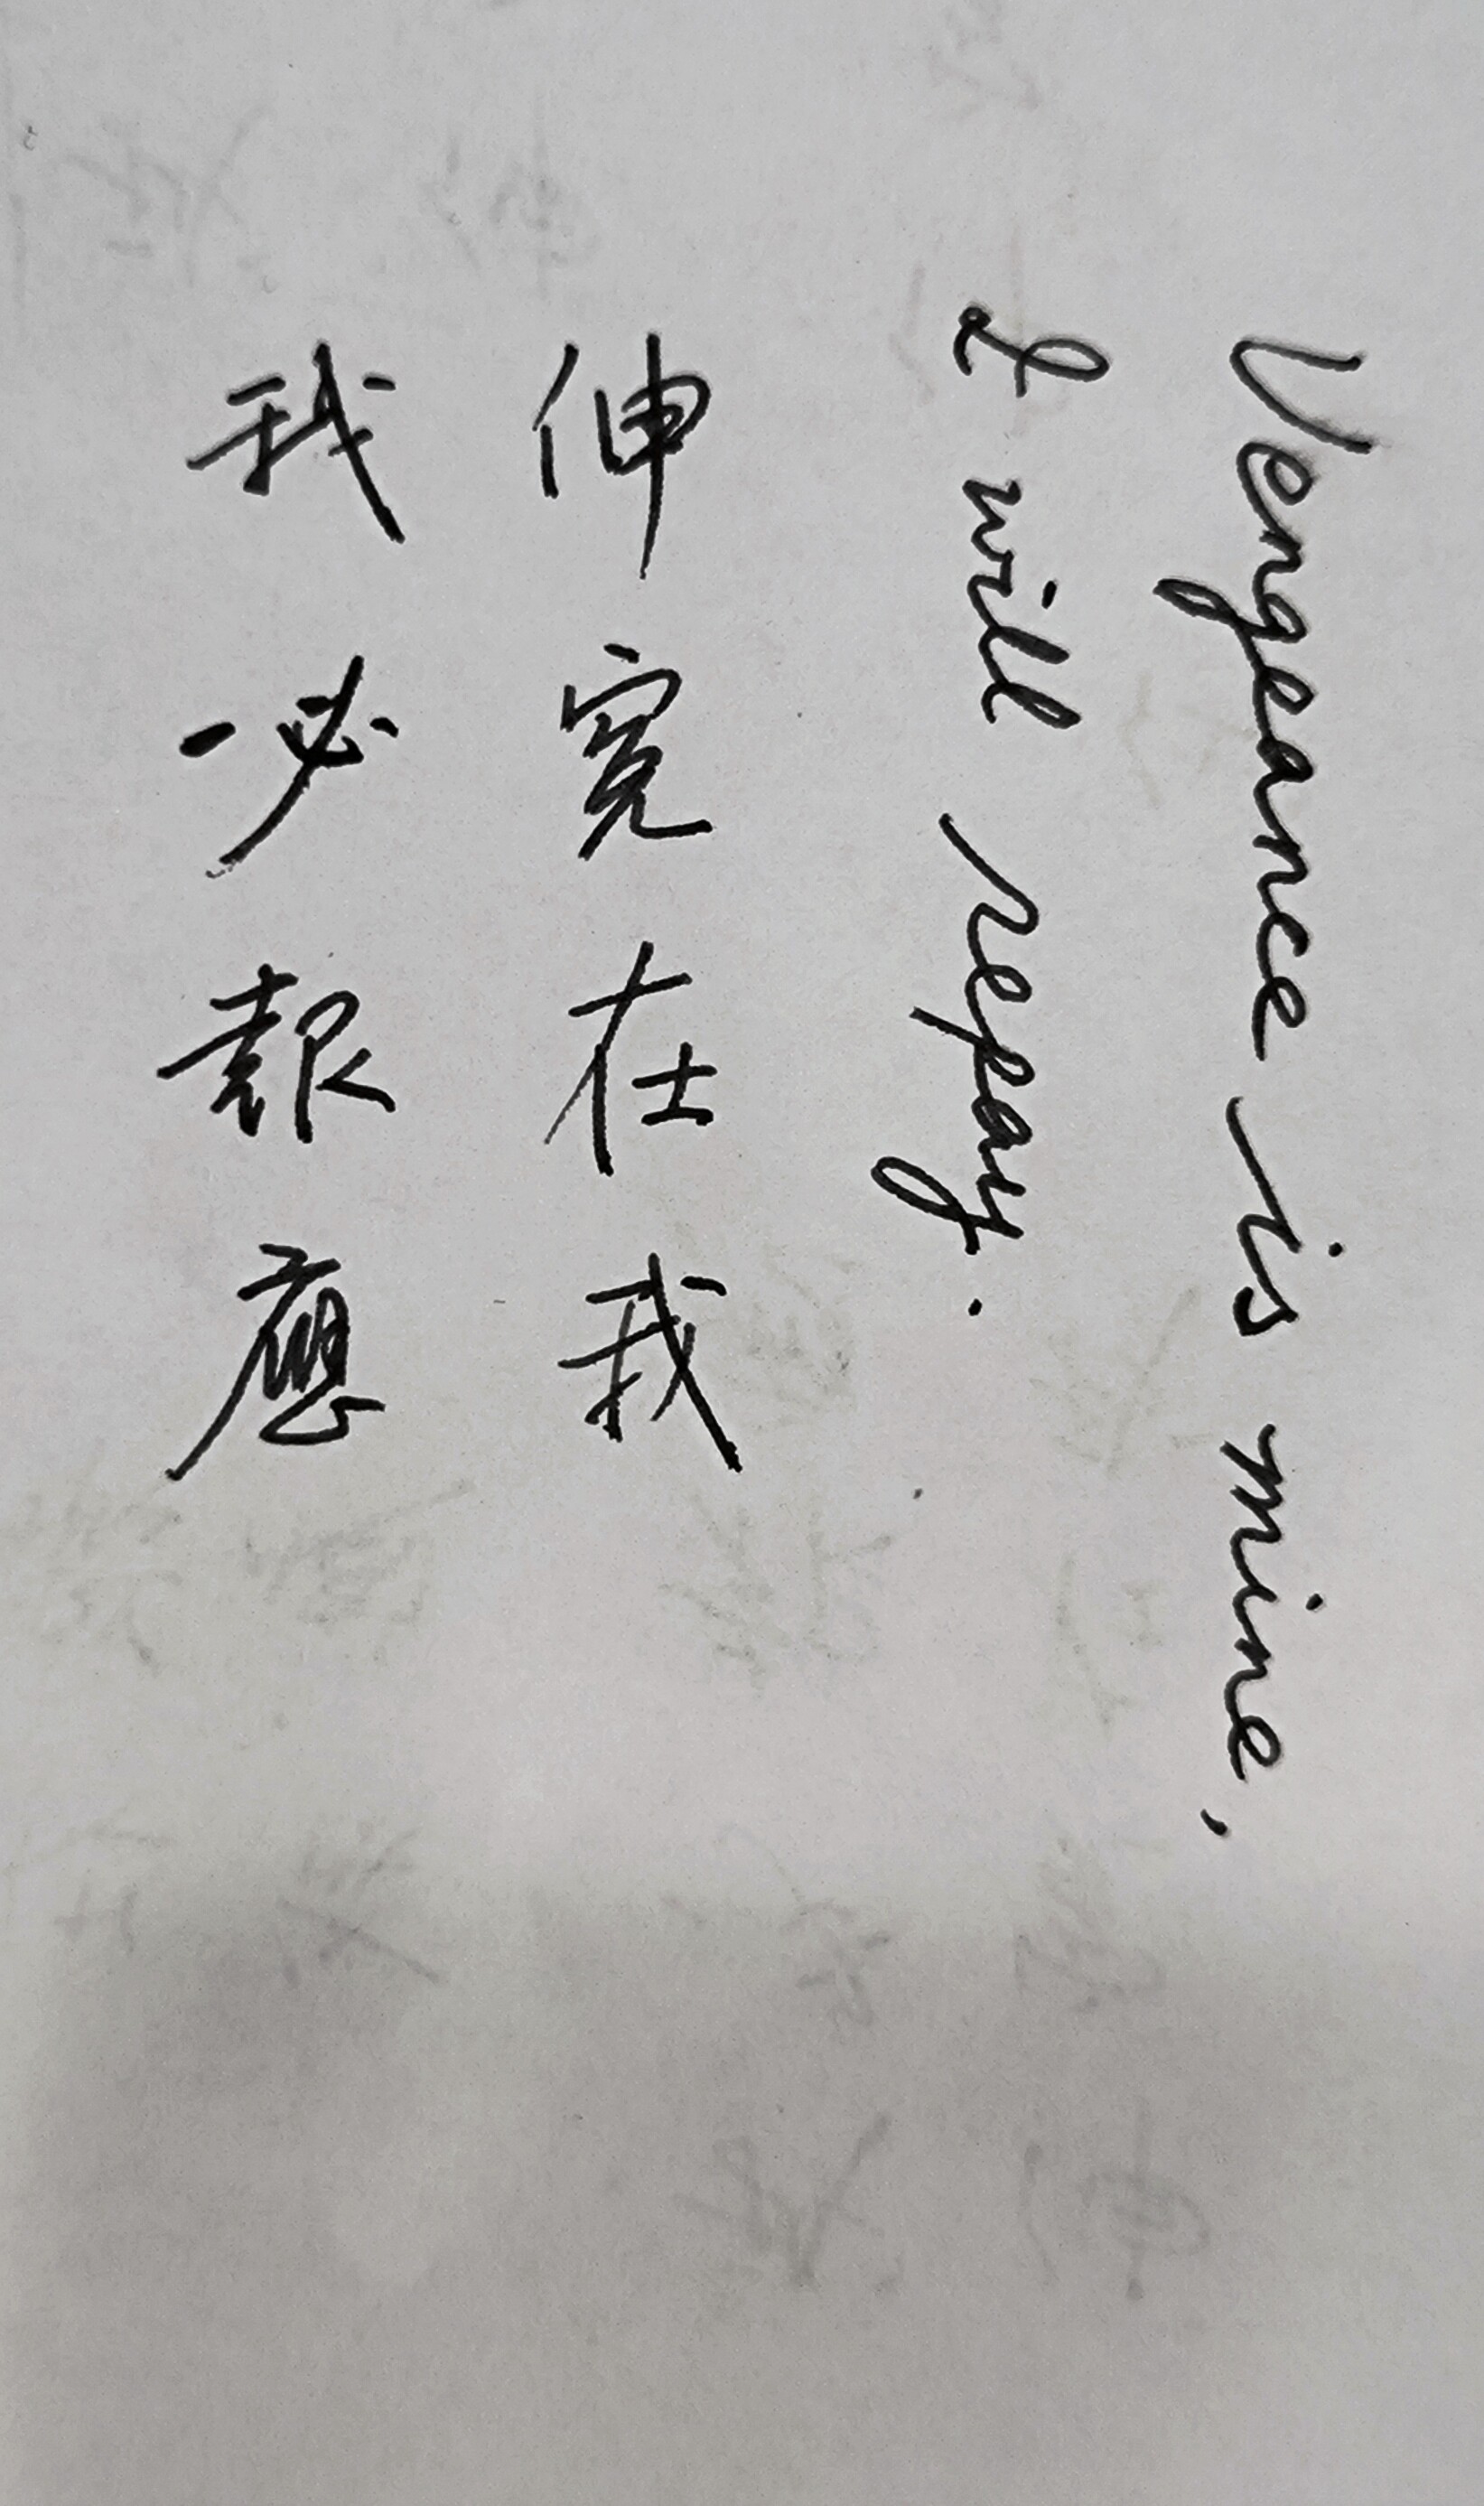 Vengeance is mine,
I will repay.
伸冤在我
我必報應